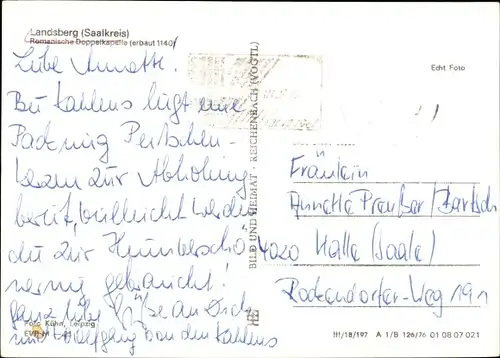 Landsberg (Saalkreis)
Romanische Doppelkapelle (erbaut 1140)
Echt Foto
Liebe Annette!
Bei Kahlens liegt eine
Packung
zur Abholung
bereit, vielleicht werden
du zur
gebraucht!
ganz liebe Grüße an Dich
und Wolfgang von den Kahlens
Foto: Kühn, Leipzig
BILD UND HEIMAT · REICHENBACH (VOGTL)
Fräulein
Annette Preußer/Bartsch
4020 Halle (Saale)
Rockendorfer-Weg 191
III/18/197 A 1/B 126/76 01 08 07 021